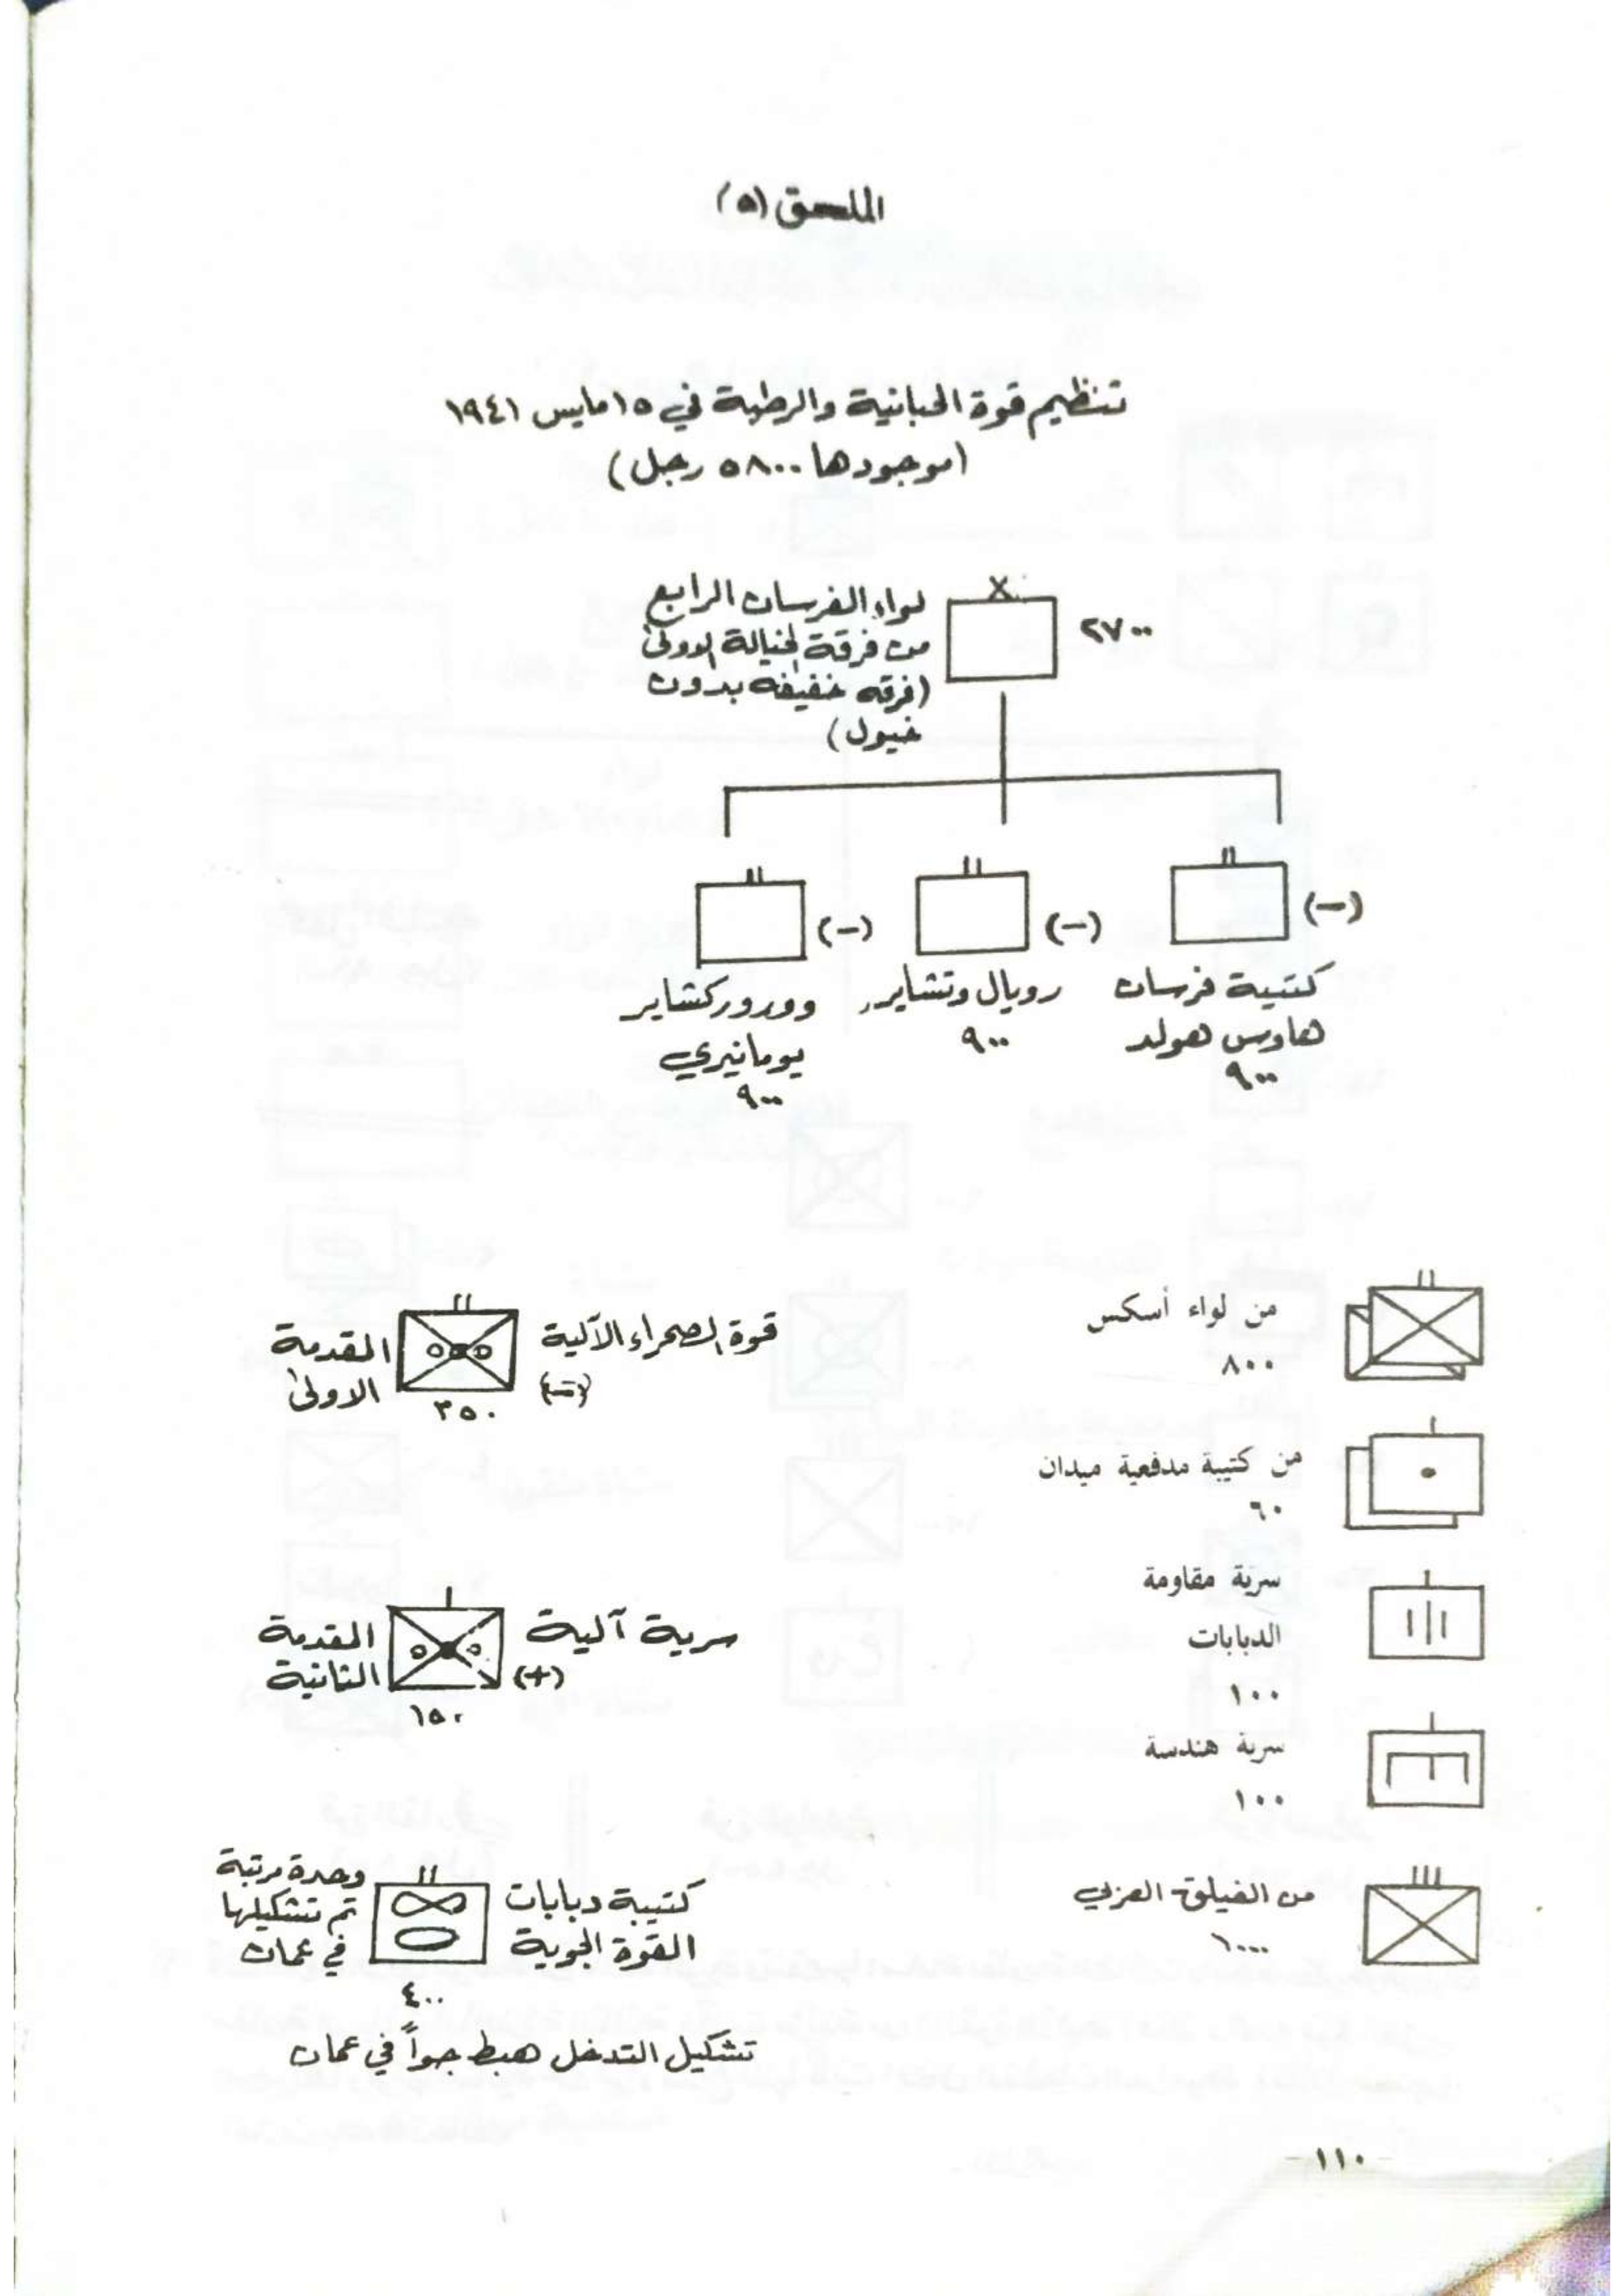 الملحق (٥)
تنظيم قوة الحبانية والرطبة في ١٥ مايس ١٩٤١
(موجودها ٥٨٠٠ رجل)
لواء الفرسان الرابع
من فرقة الخيالة الاولى
(فرقه خفيفه بدون
خيول)
٢٧٠٠
(-)
(-)
(-)
كتيبة فرسان
هاوس هولد
٩٠٠
رويال وتشاير
٩٠٠
وورورکشاير
يومانيري
٩٠٠
من لواء أسكس
٨٠٠
من كتيبة مدفعية ميدان
٦٠
سرية مقاومة
الدبابات
١٠٠
سرية هندسة
١٠٠
من الفيلق العربي
١٠٠٠
قوة الصحراء الآلية
(-)
المقدمة
الاولى
٣٥٠
سرية آلية
(+)
المقدمة
الثانية
١٥٠
كتيبة دبابات
القوة الجوية
وحدة مرتبة
تم تشكيلها
في عمان
٤٠٠
تشكيل التدخل هبط جواً في عمان
١١٠